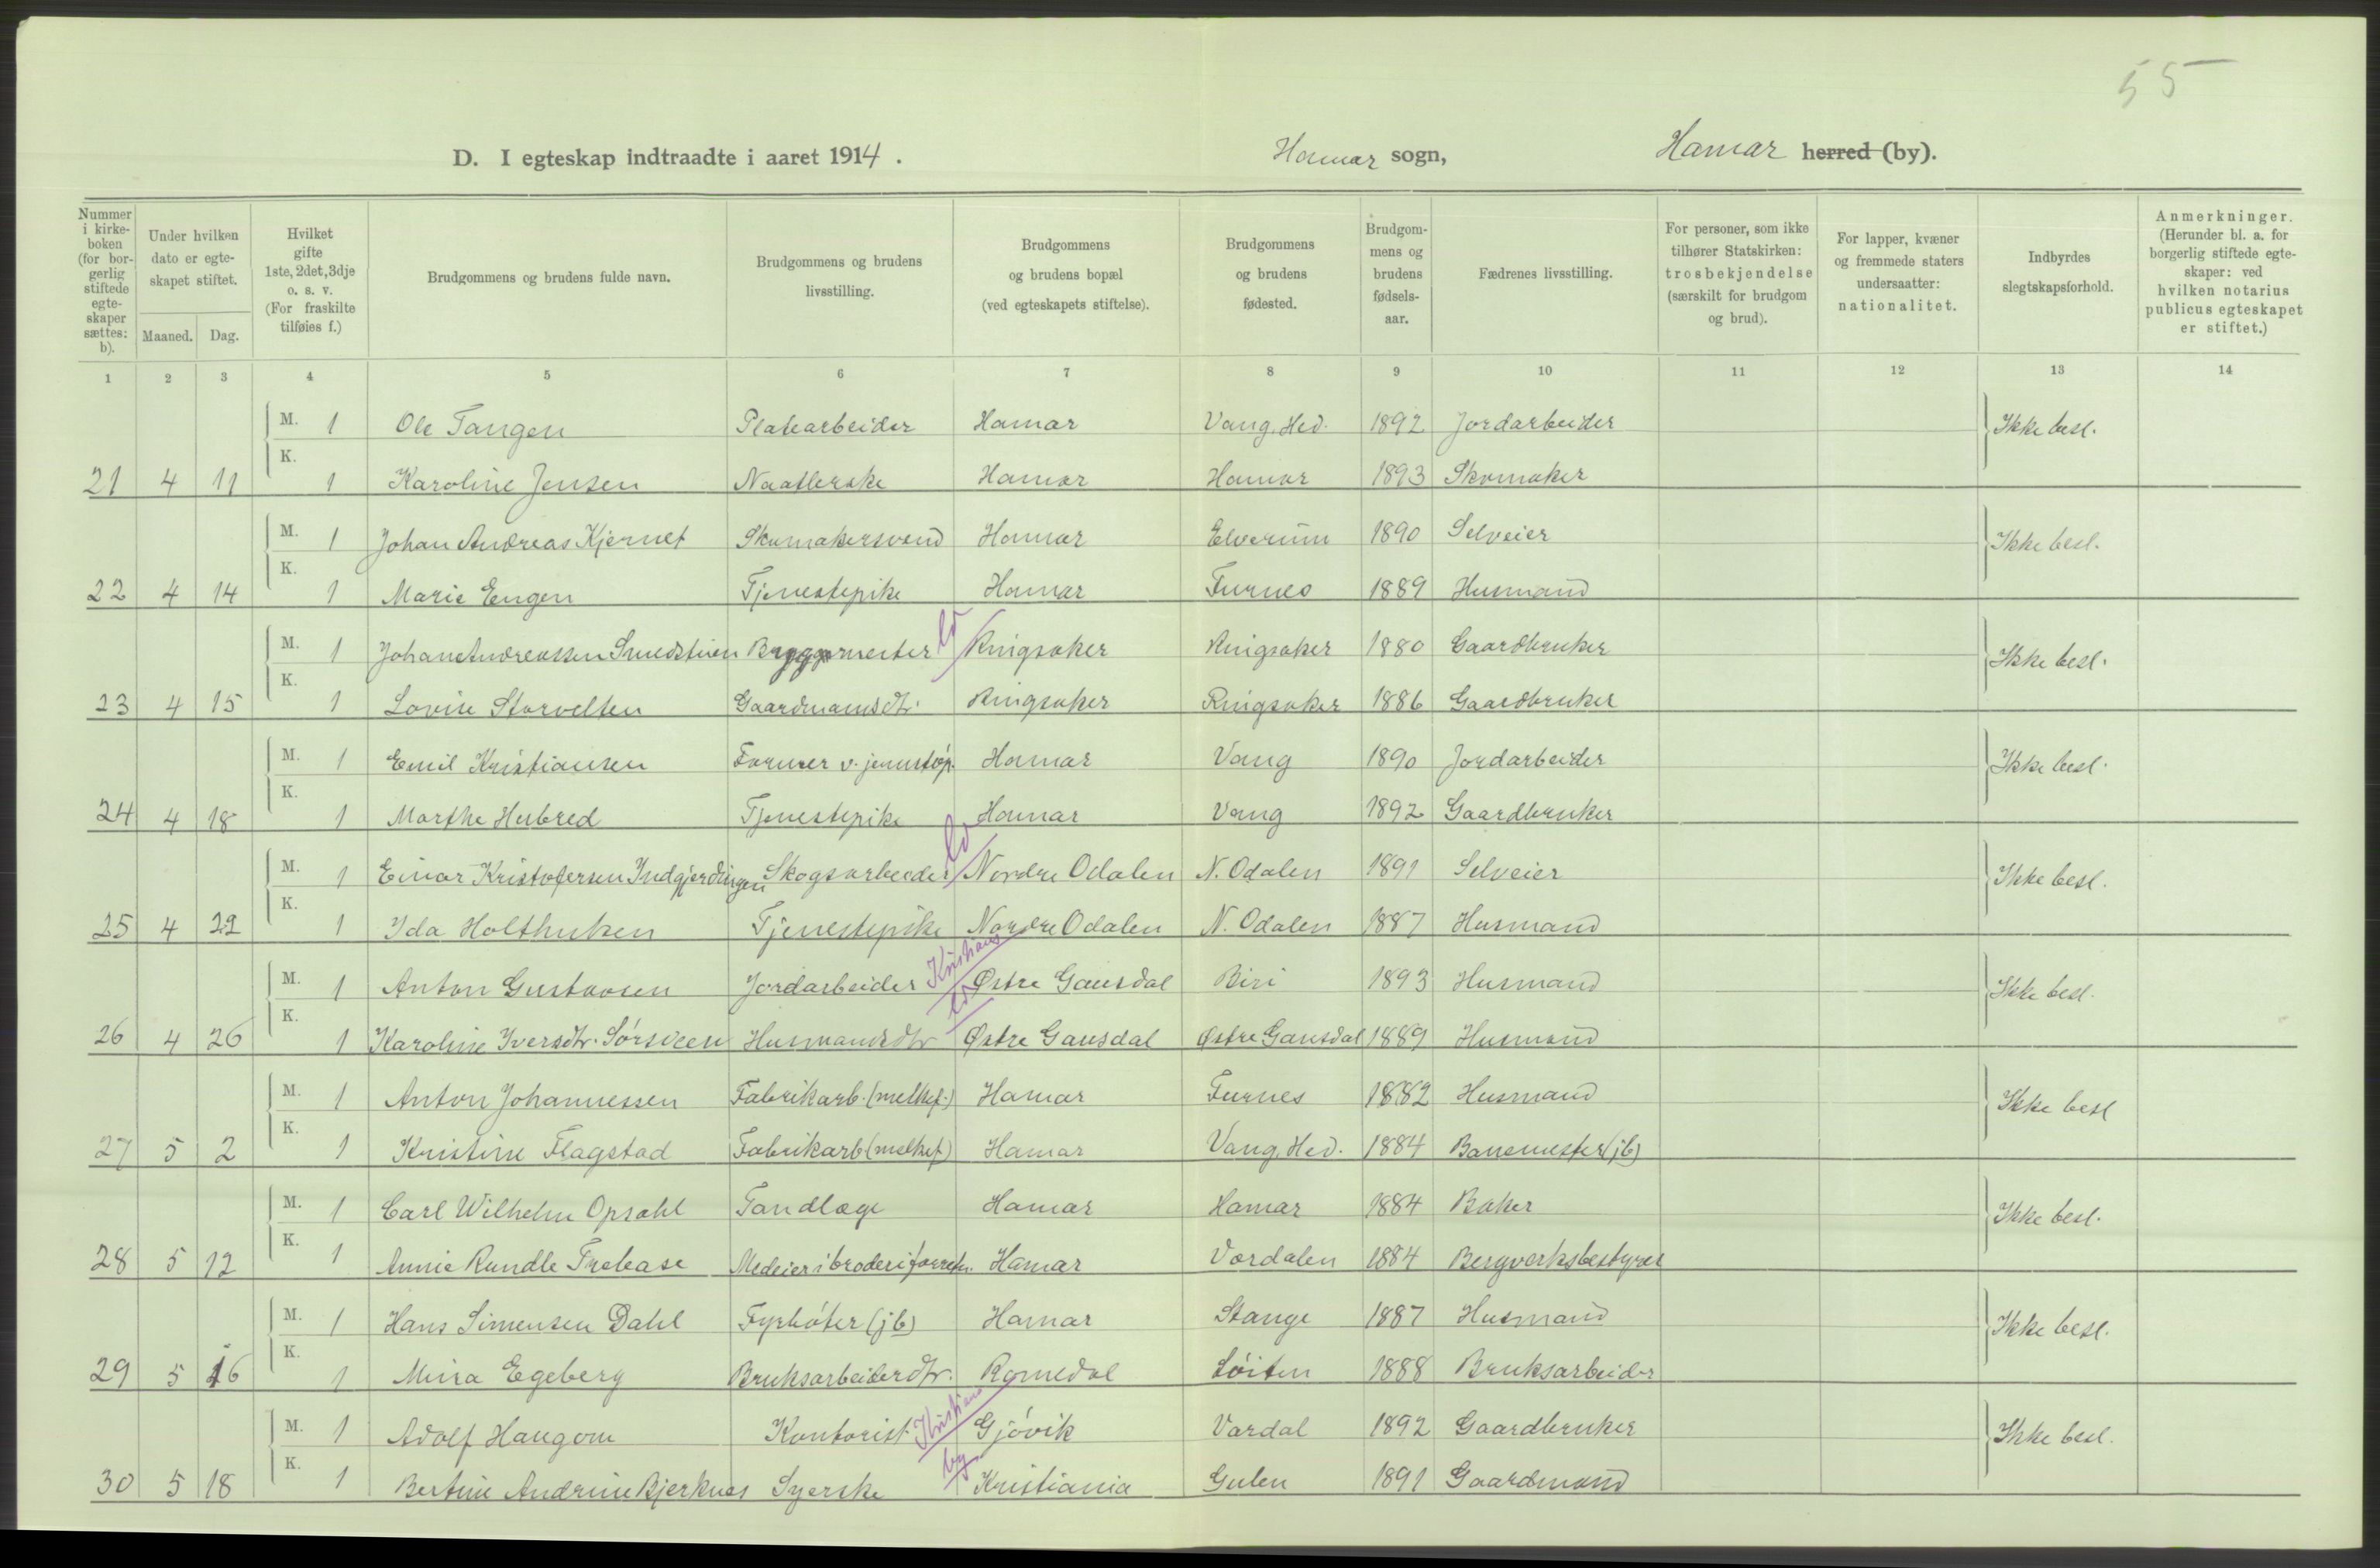 55
D. I egteskap indtraadte i aaret 1914. Hamar sogn, Hamar herred (by).
Nummer i kirkeboken (for borgerlig stiftede egteskaper sættes: b).
Under hvilken dato er egteskapet stiftet.
Maaned. Dag.
Hvilket gifte 1ste, 2det, 3dje o. s. v. (For fraskilte tilføies f.)
Brudgommens og brudens fulde navn.
Brudgommens og brudens livsstilling.
Brudgommens og brudens bopæl (ved egteskapets stiftelse).
Brudgommens og brudens fødested.
Brudgommens og brudens fødselsaar.
Fædrenes livsstilling.
For personer, som ikke tilhører Statskirken: trosbekjendelse (særskilt for brudgom og brud).
For lapper, kvæner og fremmede staters undersaatter: nationalitet.
Indbyrdes slegtskapsforhold.
Anmerkninger. (Herunder bl. a. for borgerlig stiftede egteskaper: ved hvilken notarius publicus egteskapet er stiftet.)
1 2 3 4 5 6 7 8 9 10 11 12 13 14
M. 1 Ole Tangen Platearbeider Hamar Vang, Hed. 1892 Jordarbeider Ikke besl.
21 4 11 K. 1 Karoline Jensen Naatlerske Hamar Hamar 1893 Skomaker
M. 1 Johan Andreas Kjernet Skomakersvend Hamar Elverum 1890 Selveier Ikke besl.
22 4 14 K. 1 Marie Engen Tjenestepike Hamar Furnes 1889 Husmand
M. 1 Johan Andreassen Smedstuen Byggmester ld Ringsaker Ringsaker 1880 Gaardbruker Ikke besl.
23 4 15 K. 1 Lovise Storvelten Gaardmansdtr. Ringsaker Ringsaker 1886 Gaardbruker
M. 1 Emil Kristiansen Former v. jernstøp. Hamar Vang 1890 Jordarbeider Ikke besl.
24 4 18 K. 1 Marthe Hubred Tjenestepike Hamar Vang 1892 Gaardbruker
M. 1 Einar Kristofersen Indgjerdingen Skogsarbeider ld Nordre Odalen N. Odalen 1891 Selveier Ikke besl.
25 4 22 K. 1 Ida Holthuken Tjenestepike Nordre Odalen N. Odalen 1887 Husmand
M. 1 Anton Gustavsen Jordarbeider Kristians ld Østre Gausdal Biri 1893 Husmand Ikke besl.
26 4 26 K. 1 Karoline Iversdtr. Sørsveen Husmandsdtr Østre Gausdal Østre Gausdal 1889 Husmand
M. 1 Anton Johannessen Fabrikarb. (melkef.) Hamar Furnes 1882 Husmand Ikke besl
27 5 2 K. 1 Kristine Flagstad Fabrikarb (melkef) Hamar Vang, Hed. 1884 Banemester (jb)
M. 1 Carl Wilhelm Opsahl Tandlæge Hamar Hamar 1884 Baker Ikke besl.
28 5 12 K. 1 Annie Rundle Trelease Medeier i broderiforretn. Hamar Vordalen 1884 Bergverksbestyrer
M. 1 Hans Simensen Dahl Fyrbøter (jb) Hamar Stange 1887 Husmand Ikke besl.
29 5 16 K. 1 Mina Egeberg Bruksarbeiderdtr. Romedal Løiten 1888 Bruksarbeider
M. 1 Adolf Haugom Kontorist Kristians by Gjøvik Vardal 1892 Gaardbruker Ikke besl.
30 5 18 K. 1 Bertine Andrine Bjerknes Syerske Kristiania Gulen 1891 Gaardmand